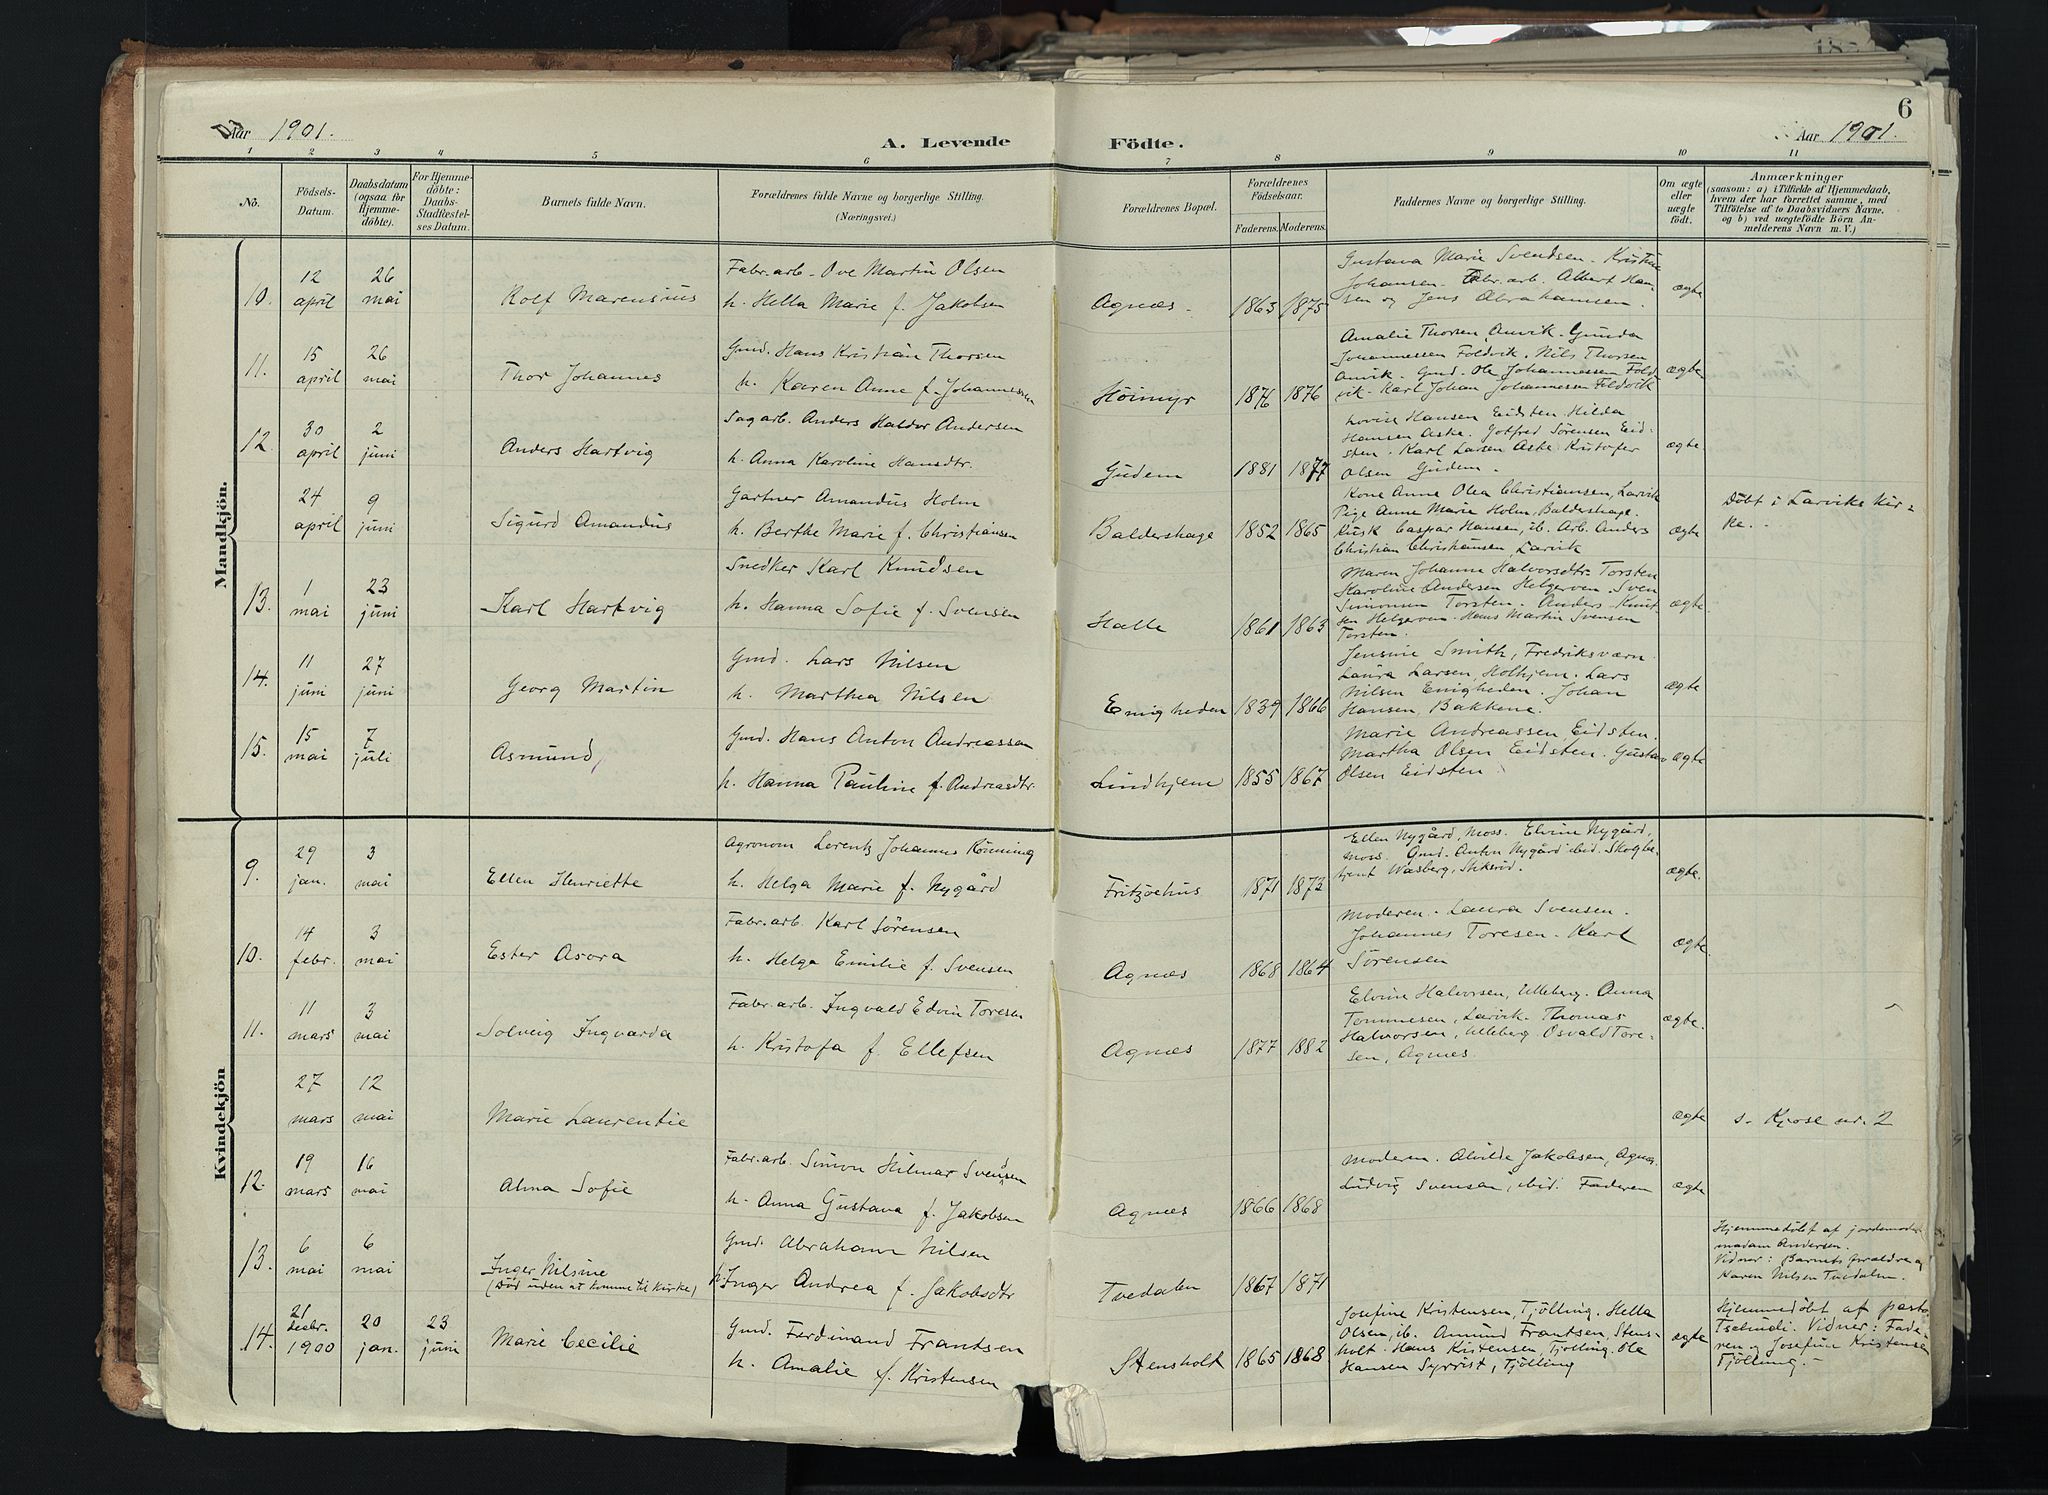 Aar 1901.
A. Levende Födte.
Aar 1901.
6
1 2 3 4 5 6 7 8 9 10 11
No.
Födsels-Datum.
Daabsdatum (ogsaa for Hjemmedöbte).
For Hjemmedöbte: Daabs-Stadfestelses Datum.
Barnets fulde Navn.
Forældrenes fulde Navne og borgerlige Stilling. (Næringsvei.)
Forældrenes Bopæl.
Forældrenes Födselsaar.
Faderens. Moderens.
Faddernes Navne og borgerlige Stilling.
Om ægte eller uægte födt.
Anmærkninger
(saasom: a) i Tilfælde af Hjemmedaab, hvem der har forrettet samme, med Tilföielse af to Daabsvidners Navne, og b) ved uægtefödte Börn Anmelderens Navn m. V.)
Mandkjön.
10. 12 april 26 mai Rolf Marensius
Fabr. arb. Ove Martin Olsen
h. Hella Marie f. Jakobsen
Agnæs. 1863 1875
Gustava Marie Svendsen. Kristine
Johansen. Fabr. arb. Albert Han-
sen og Jens Abrahamsen.
ægte
11. 15 april 26 mai Thor Johannes
Gmd. Hans Kristian Thorsen
h. Karen Anne f. Johannessen
Höimyr 1876 1876
Amalie Thorsen, Anvik. Gunda
Johannessen Foldvik. Nils Thorsen
Anvik. Gmd. Ole Johannessen Fold
vik. Karl Johan Johannessen Foldvik
ægte
12. 30 april 2 juni Anders Hartvig
Sagarb. Anders Haldor Andersen
h. Anna Karoline Hansdtr.
Gudem 1881 1877
Lovise Hansen Eidsten. Hilda
Hansen Aske. Gotfred Sörensen Eid-
sten. Karl Larsen Aske. Kristofer
Olsen Gudem.
ægte
24 april 9 juni Sigurd Amandus
Gartner Amandus Holm
h. Berthe Marie f. Christiansen
Baldershage 1852 1865
Kone Anne Olea Christiansen, Larvik
Pige Anne Marie Holm, Baldershage.
Kusk Caspar Hansen, ib. Arb. Anders
Christian Christiansen, Larvik
ægte
Döbt i Larviks Kir-
ke.
13. 1 mai 23 juni Karl Hartvig
Snedker Karl Knudsen
h. Hanna Sofie f. Svensen
Halle 1861 1863
Maren Johanne Halvorsdtr. Torsten
Karoline Andersen Helgerven. Sven
Simonsen Torsten. Anders Knut-
sen Helgerven. Hans Martin Svensen
Torsten.
ægte
14. 11 juni 27 juni Georg Martin
Gmd. Lars Nilsen
h. Marthea Nilsen
Enigheden 1839 1866
Jensine Smith, Fredriksværn.
Laura Larsen, Holhjem. Lars
Nilsen Enigheden. Johan
Hansen, Bakkene.
ægte
15. 15 mai 7 juli Asmund
Gmd. Hans Anton Andreassen
h. Hanna Pauline f. Andreasdtr.
Lindhjem 1855 1867
Marie Andreassen, Eidsten.
Martha Olsen Eidsten. Gustav
Olsen Eidsten
ægte
Kvindekjön
9. 29 jan. 3 mai Ellen Henriette
Agronom Lorentz Johannes Rönning
h. Helga Marie f. Nygård
Fritzöehus 1871 1873
Ellen Nygård, Moss. Elvine Nygård,
Moss. Gmd. Anton Nygård ibid. Skogbe-
tjent Wasberg,
ægte.
10. 14 febr. 3 mai Ester Asora
Fabr. arb. Karl Sörensen
h. Helga Emilie f. Svensen
Agnæs 1868 1864
Moderen. Laura Svensen.
Johannes Toresen. Karl
Sörensen
ægte
11. 11 mars 3 mai Solveig Ingvarda
Fabr. arb. Ingvald Edvin Toresen
h. Kristofa f. Ellefsen
Agnæs 1877 1882
Elvine Halvorsen, Ulleberg. Anna
Tommesen, Larvik. Thomas
Halvorsen, Ulleberg Osvald Tore-
sen, Agnæs.
ægte.
27 mars 12 mai Marie Laurentie
ægte
s. Kjose nr. 2
12. 19 mars 16 mai Alma Sofie
Fabr. arb. Simon Hilmar Svendsen
h. Anna Gustava f. Jakobsen
Agnæs 1866 1868
Moderen. Alvilde Jakobsen, Agnæs.
Ludvig Svensen, ibid. Faderen
ægte
13. 6 mai 6 mai Inger Nilsine
(Död uden at komme til kirke)
Gmd. Abraham Nilsen
h. Inger Andrea f. Jakobsdtr
Tvedalen 1867 1871
Hjemmedöbt af jordemoder
madam Andersen.
Vidner: Barnets forældre og
Karen Nilsen Tvedalen.
14. 21 decbr. 1900 20 jan. 23 juni Marie Cecilie
Gmd. Ferdinand Frantsen
h. Amalie f. Kristensen
Stensholt 1865 1868
Josefine Kristensen, Tjölling. Hella
Olsen, ib. Amund Frantsen, Stens-
holt. Hans Kristensen, Tjölling. Ole
Hansen Syrrist, Tjölling
ægte
Hjemmedöbt af pastor
Tschudi. Vidner: Fade-
ren og Josefine Kristensen
Tjölling.